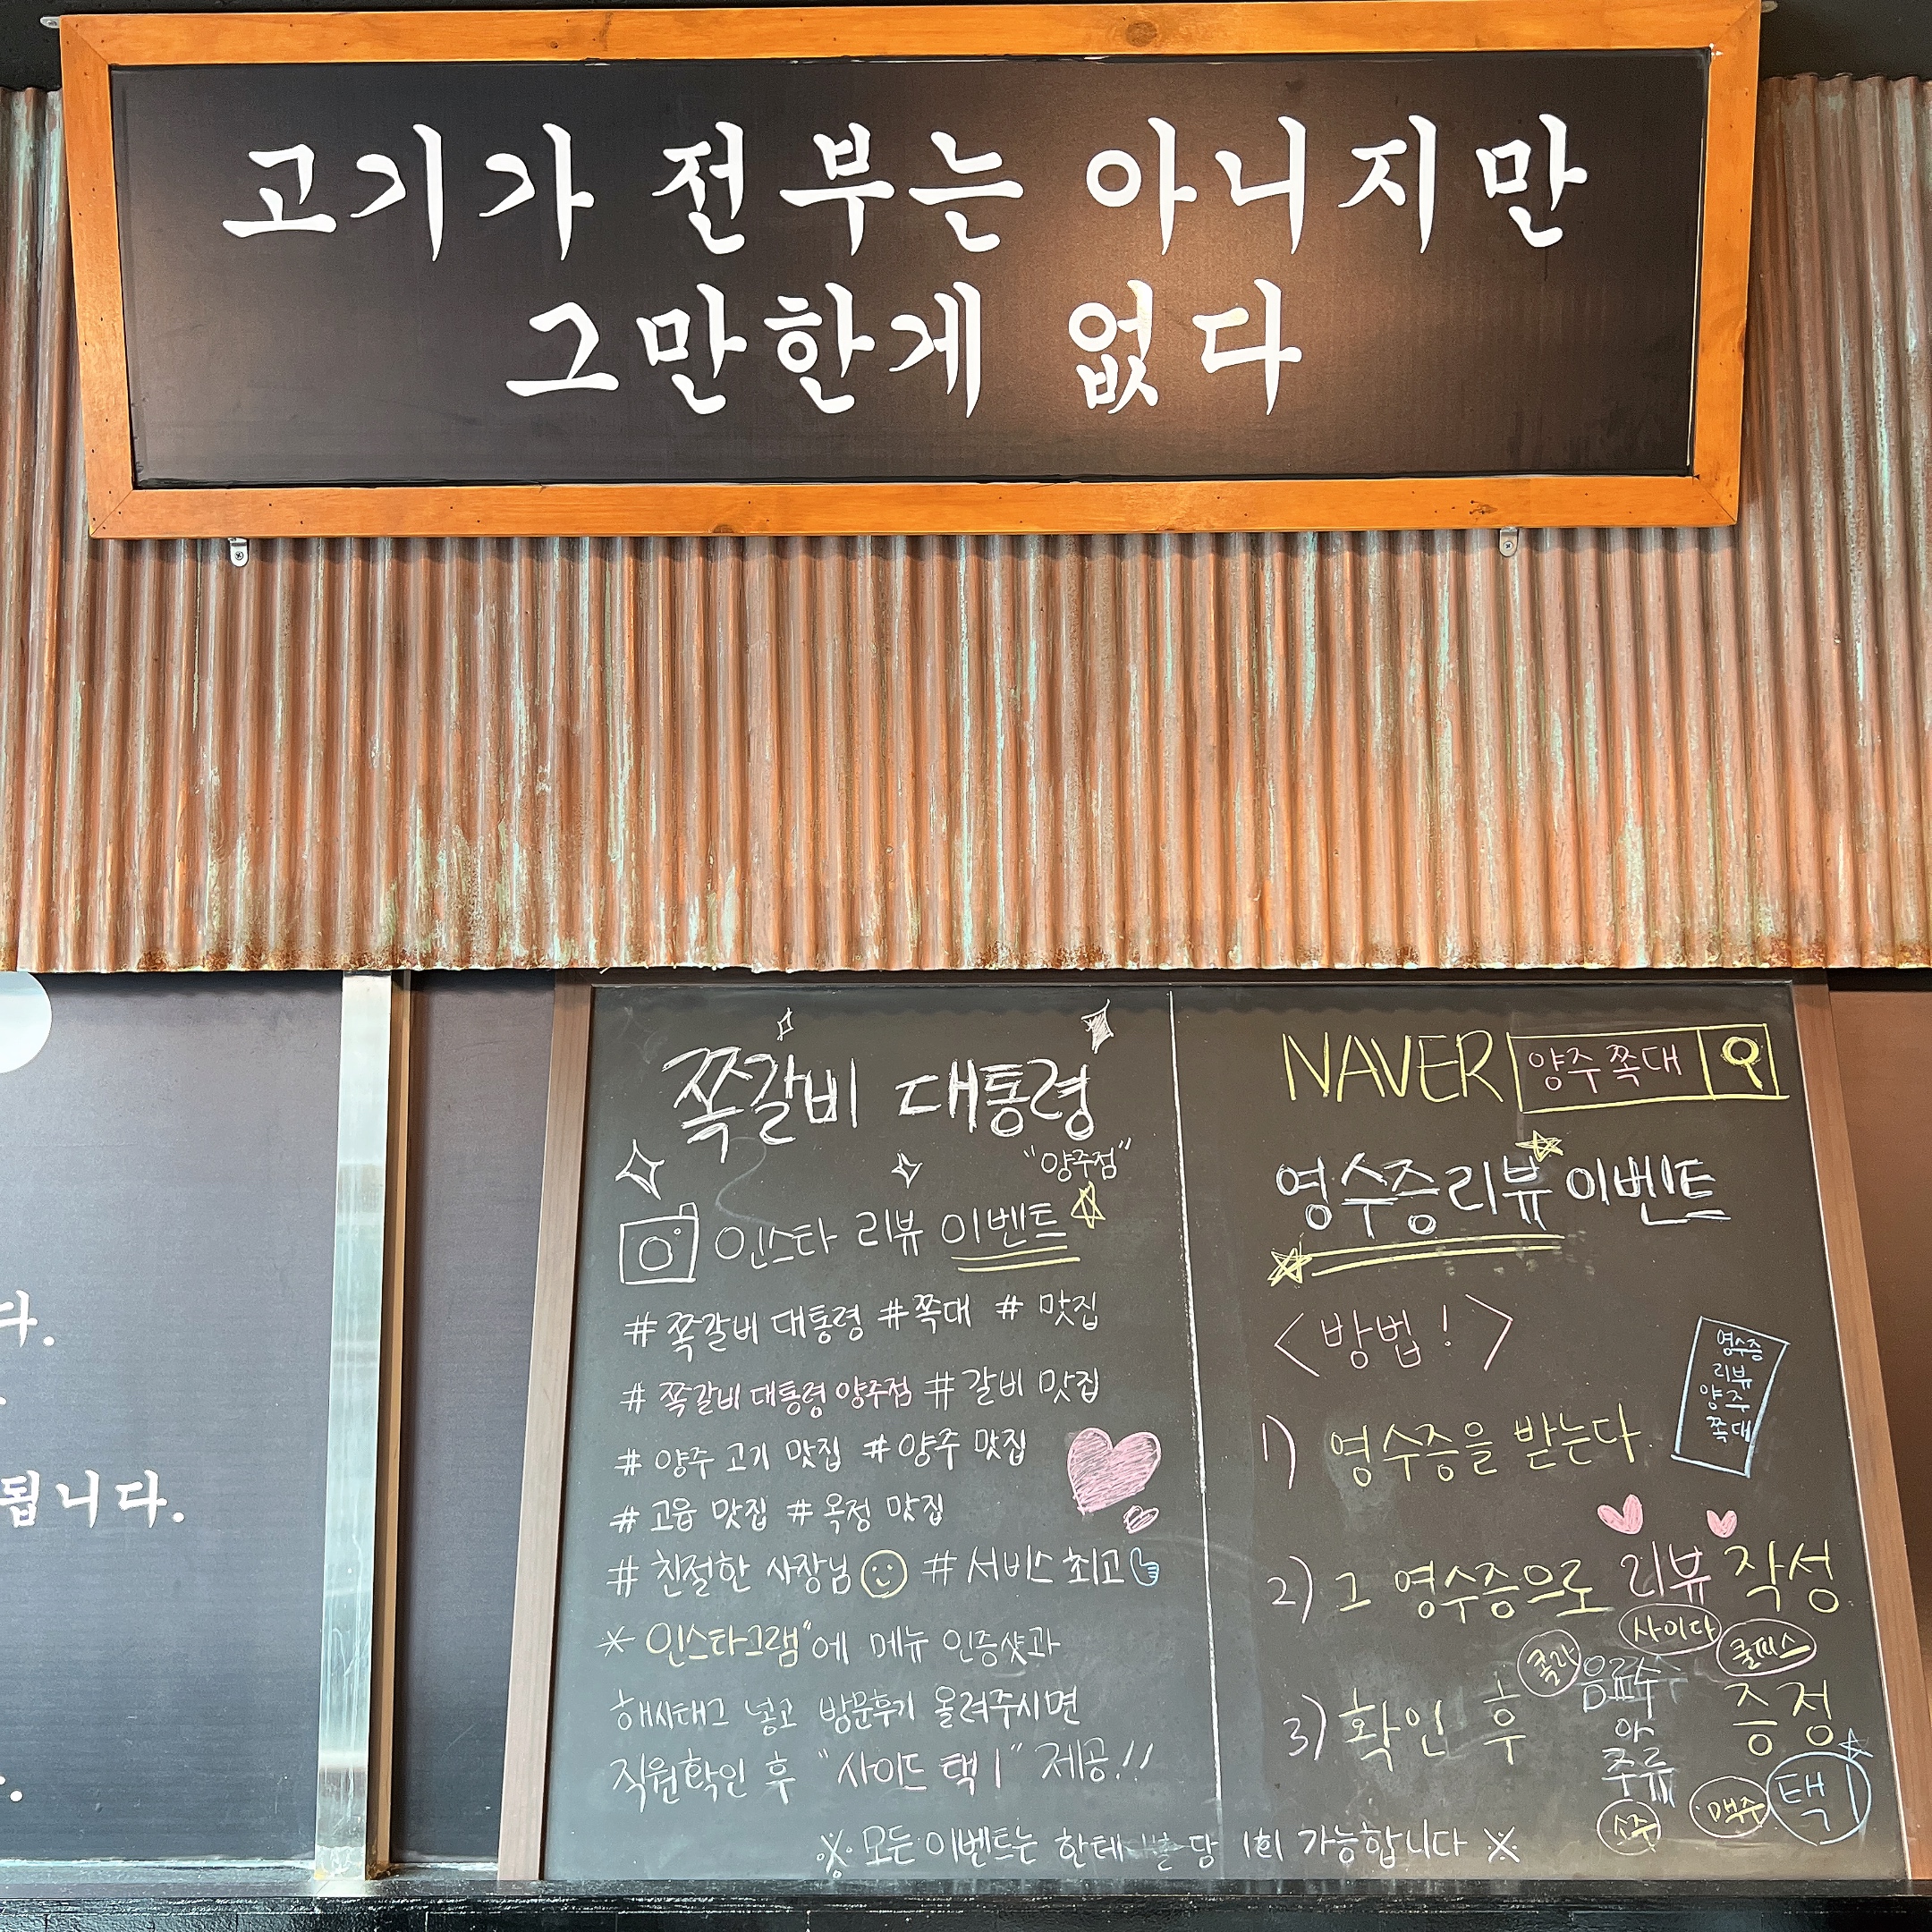 고기가 전부는 아니지만
그만한게 없다
다.
됩니다.
쪽갈비 대통령
"양주점"
인스타 리뷰 이벤트
# 쪽갈비 대통령 # 쪽대 # 맛집
# 쪽갈비 대통령 양주점 # 갈비 맛집
# 양주 고기 맛집 # 양주 맛집
# 고읍 맛집 # 옥정 맛집
# 친절한 사장님 # 서비스 최고
* 인스타그램"에 메뉴 인증샷과
해시태그 넣고 방문후기 올려주시면
직원확인 후 "사이드 택 1" 제공!!
NAVER 양주 쪽대
영수증리뷰 이벤트
<방법!>
영수증
리뷰
양주
쪽대
1) 영수증을 받는다.
2) 그 영수증으로 리뷰 작성
사이다
콜라 음료수 쿨피스
3) 확인 후 증정
주류
소주 맥주 택1
※ 모든 이벤트는 한테 당 1회 가능합니다 ※